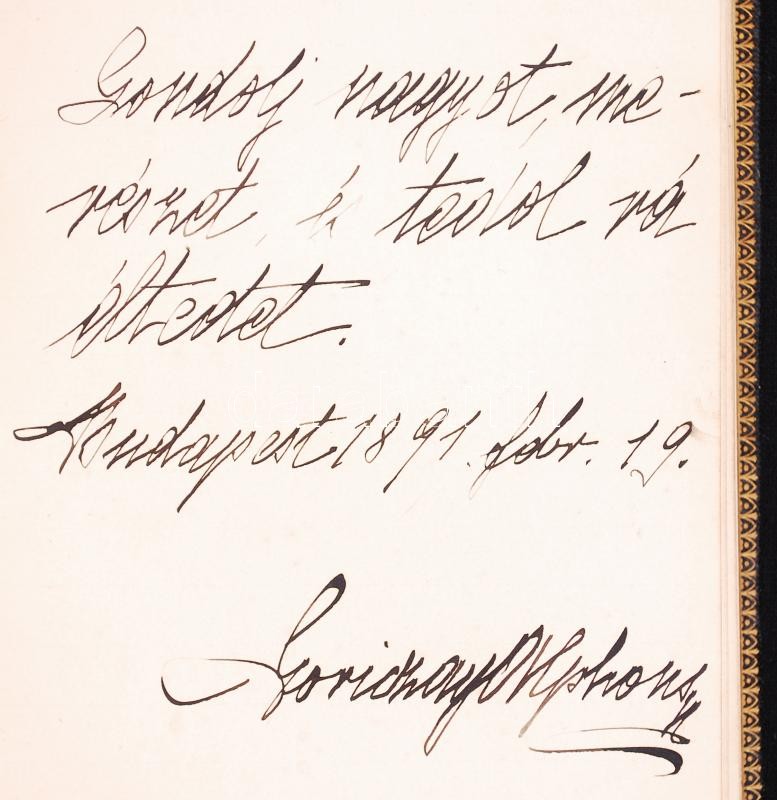 Gondolj nagyot, me-
részet, és tedd rá
éltedet.
Budapest 1891. febr. 19.
Alphons